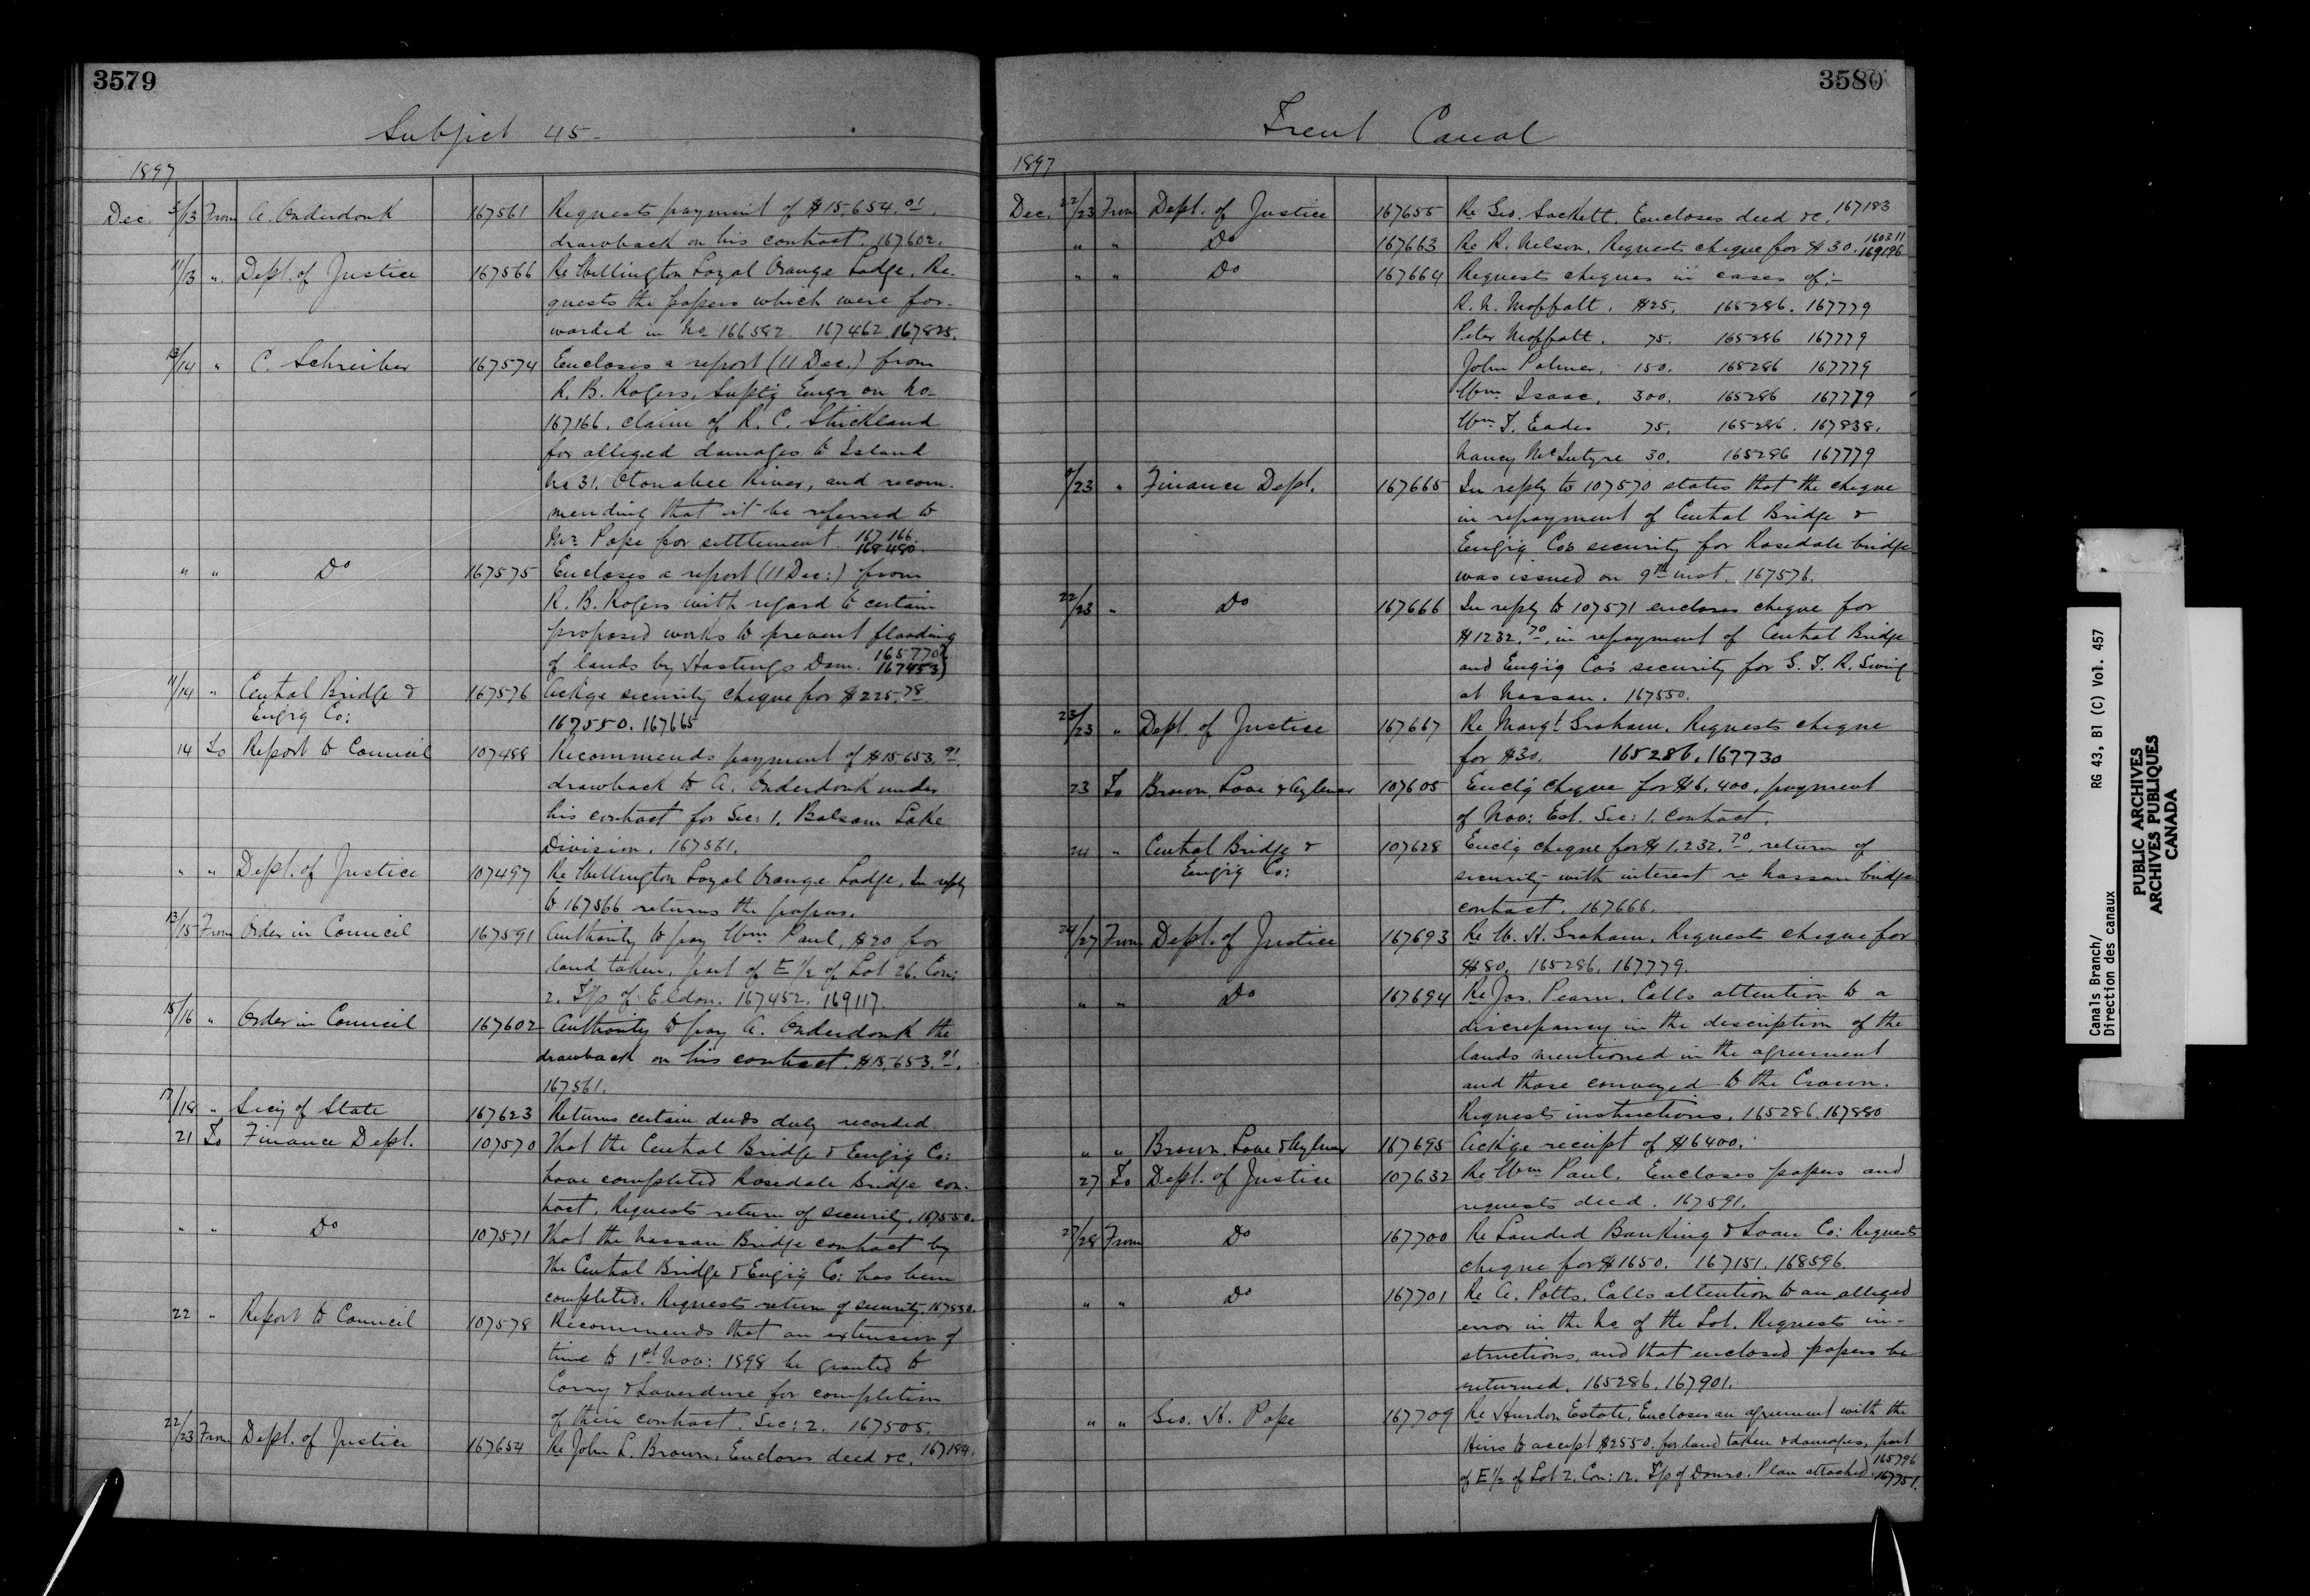 3579
Subject 45-
1897
Dec. 3/13 From A. Onderdonk 167561 Requests payment of $15,654.01.
drawback on his contract. 167602.
11/13 " Dept. of Justice 167566 Re Wellington Loyal Orange Lodge. Re-
quests the papers which were for-
warded in No 166582 167462. 167825.
13/14 " C. Schreiber 167574 Encloses a report (11 Dec.) from
R. B. Rogers, Suptg Engr on No-
167166. claim of R. C. Strickland
for alleged damages to Island
No 31. Otonabee River, and recom-
mending that it be referred to
Mr. Pope for settlement. 167166. 168480.
" " Do 167575 Encloses a report (11 Dec:) from
R. B. Rogers with regard to certain
proposed works to prevent flooding
of lands by Hastings Dam. 165770 167453)
11/14 " Central Bridge & Engrg Co: 167576 Ackge security cheque for $225.78
167550. 167665
14 To Report to Council 107488 Recommends payment of $15,653.91.
drawback to A. Onderdonk under
his contract for Sec: 1. Balsam Lake
Division. 167561.
" " Dept. of Justice 107497 Re Wellington Loyal Orange Lodge. In reply
to 167566 returns the papers.
13/15 From Order in Council 167591 Authority to pay Wm Paul, $20 for
land taken, part of E 1/2 of Lot 26. Con:
2. T/p of Eldon. 167452. 169117.
15/16 " Order in Council 167602 Authority to pay A. Onderdonk the
drawback on his contract. $15,653.91.
167561.
17/18 " Secy of State 167623 Returns certain deeds duly recorded.
21 To Finance Dept. 107570 That the Central Bridge & Engig Co:
have completed Rosedale Bridge con-
tract. Requests return of security. 167550.
" " Do 107571 That the Nassau Bridge contract by
the Central Bridge & Engig Co: has been
completed. Requests return of security. 167550.
22 " Report to Council 107578 Recommends that an extension of
time to 1st Nov: 1898 be granted to
Corry & Laverdure for completion
of their contract. Sec: 2. 167505.
22/23 From Dept. of Justice 167654 Re John L. Brown. Encloses deed &c. 167184.
3580
Trent Canal
1897
Dec. 22/23 From Dept. of Justice 167655 Re Geo. Sackett. Encloses deed &c. 167183
" " Do 167663 Re R. Nelson. Requests cheque for $30. 160311 169196
" " Do 167664 Requests cheques in cases of:-
R. N. Moffatt. $25. 165286. 167779
Peter Moffatt. 75. 165286 167779
John Palmer. 150. 165286 167779
Wm Isaac. 300. 165286 167779
Wm T. Eades 75. 165286. 167838.
Nancy McIntyre 30. 165286 167779
/23 " Finance Dept. 167665 In reply to 107570 states that the cheque
in repayment of Central Bridge &
Engig Co's security for Rosedale bridge
was issued on 9th inst. 167576.
22/23 " Do 167666 In reply to 107571 encloses cheque for
$1232.70, in repayment of Central Bridge
and Engig Co's security for G. T. R. Swing
at Nassau. 167550.
23/23 " Dept. of Justice 167667 Re Margt Graham. Requests cheque
for $30. 165286. 167730
23 To Brown, Love & Aylmer 107605 Enclg cheque for $6,400, payment
of Nov: Est. Sec: 1. contract.
24 " Central Bridge & Engig Co: 107628 Enclg cheque for $1,232.70, return of
security with interest re Nassau bridge
contract. 167666.
24/27 From Dept. of Justice 167693 Re W. H. Graham. Requests cheque for
$80. 165286. 167779.
" " Do 167694 Re Jas. Pearn. Calls attention to a
discrepancy in the description of the
lands mentioned in the agreement
and those conveyed to the Crown.
Requests instructions. 165286. 167880
" " Brown, Love & Aylmer 167695 Ackge receipt of $6400.
27 To Dept. of Justice 107632 Re Wm Paul. Encloses papers and
requests deed. 167591.
27/28 From Do 167700 Re Landed Banking & Loan Co: Requests
cheque for $1650. 167151. 168596.
" " Do 167701 Re A. Potts. Calls attention to an alleged
error in the No of the Lot. Requests in-
structions, and that enclosed papers be
returned. 165286. 167901.
" " Geo. H. Pope 167709 Re Hurdon Estate. Encloses an agreement with the
Heirs to accept $2550. for land taken & damages, part
of E 1/2 of Lot 2. Con: 12. T/p of Douro. Plan attached. 165796 167751.
Canals Branch/ RG 43, B1 (C) Vol. 457
Direction des canaux
PUBLIC ARCHIVES
ARCHIVES PUBLIQUES
CANADA